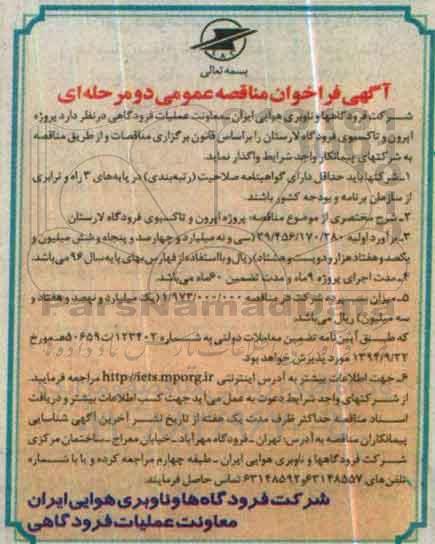 بسمه تعالی
آگهی فراخوان مناقصه عمومی دو مرحله‌ای
شرکت فرودگاهها و ناوبری هوایی ایران - معاونت عملیات فرودگاهی در نظر دارد پروژه
اپرون و تاکسیوی فرودگاه لارستان را براساس قانون برگزاری مناقصات و از طریق مناقصه
به شرکتهای پیمانکار واجد شرایط واگذار نماید.
۱- شرکتها باید حداقل دارای گواهینامه صلاحیت (رتبه‌بندی) در پایه‌های ۳ راه و ترابری
از سازمان برنامه و بودجه کشور باشند.
۲- شرح مختصری از موضوع مناقصه: پروژه اپرون و تاکسیوی فرودگاه لارستان
۳- برآورد اولیه ۳۹/۴۵۶/۱۷۰/۲۸۰ (سی و نه میلیارد و چهارصد و پنجاه و شش میلیون و
یکصد و هفتاد هزار و دویست و هشتاد) ریال و با استفاده از فهارس بهای پایه سال ۹۶ می‌باشد.
۴- مدت اجرای پروژه ۹ ماه و مدت تضمین ۶۰ ماه می‌باشد.
۵- میزان سپرده شرکت در مناقصه ۱/۹۷۳/۰۰۰/۰۰۰ (یک میلیارد و نهصد و هفتاد و
سه میلیون) ریال می‌باشد.
که طبق آیین‌نامه تضمین معاملات دولتی به شماره ۱۲۳۴۰۲/ت۵۰۶۵۹هـ مورخ
۱۳۹۴/۹/۲۲ مورد پذیرش خواهد بود.
۶- جهت اطلاعات بیشتر به آدرس اینترنتی http://iets.mporg.ir مراجعه فرمایید.
از شرکتهای واجد شرایط دعوت به عمل می‌آید جهت کسب اطلاعات بیشتر و دریافت
اسناد مناقصه حداکثر ظرف مدت یک هفته از تاریخ نشر آخرین آگهی شناسایی
پیمانکاران مناقصه به آدرس: تهران - فرودگاه مهرآباد - خیابان معراج - ساختمان مرکزی
شرکت فرودگاهها و ناوبری هوایی ایران - طبقه چهارم مراجعه کرده و یا با شماره
تلفن‌های ۶۳۱۴۸۵۵۷ و ۶۳۱۴۸۵۹۲ تماس حاصل فرمایند.
شرکت فرودگاه‌ها و ناوبری هوایی ایران
معاونت عملیات فرودگاهی
ParsNamadData